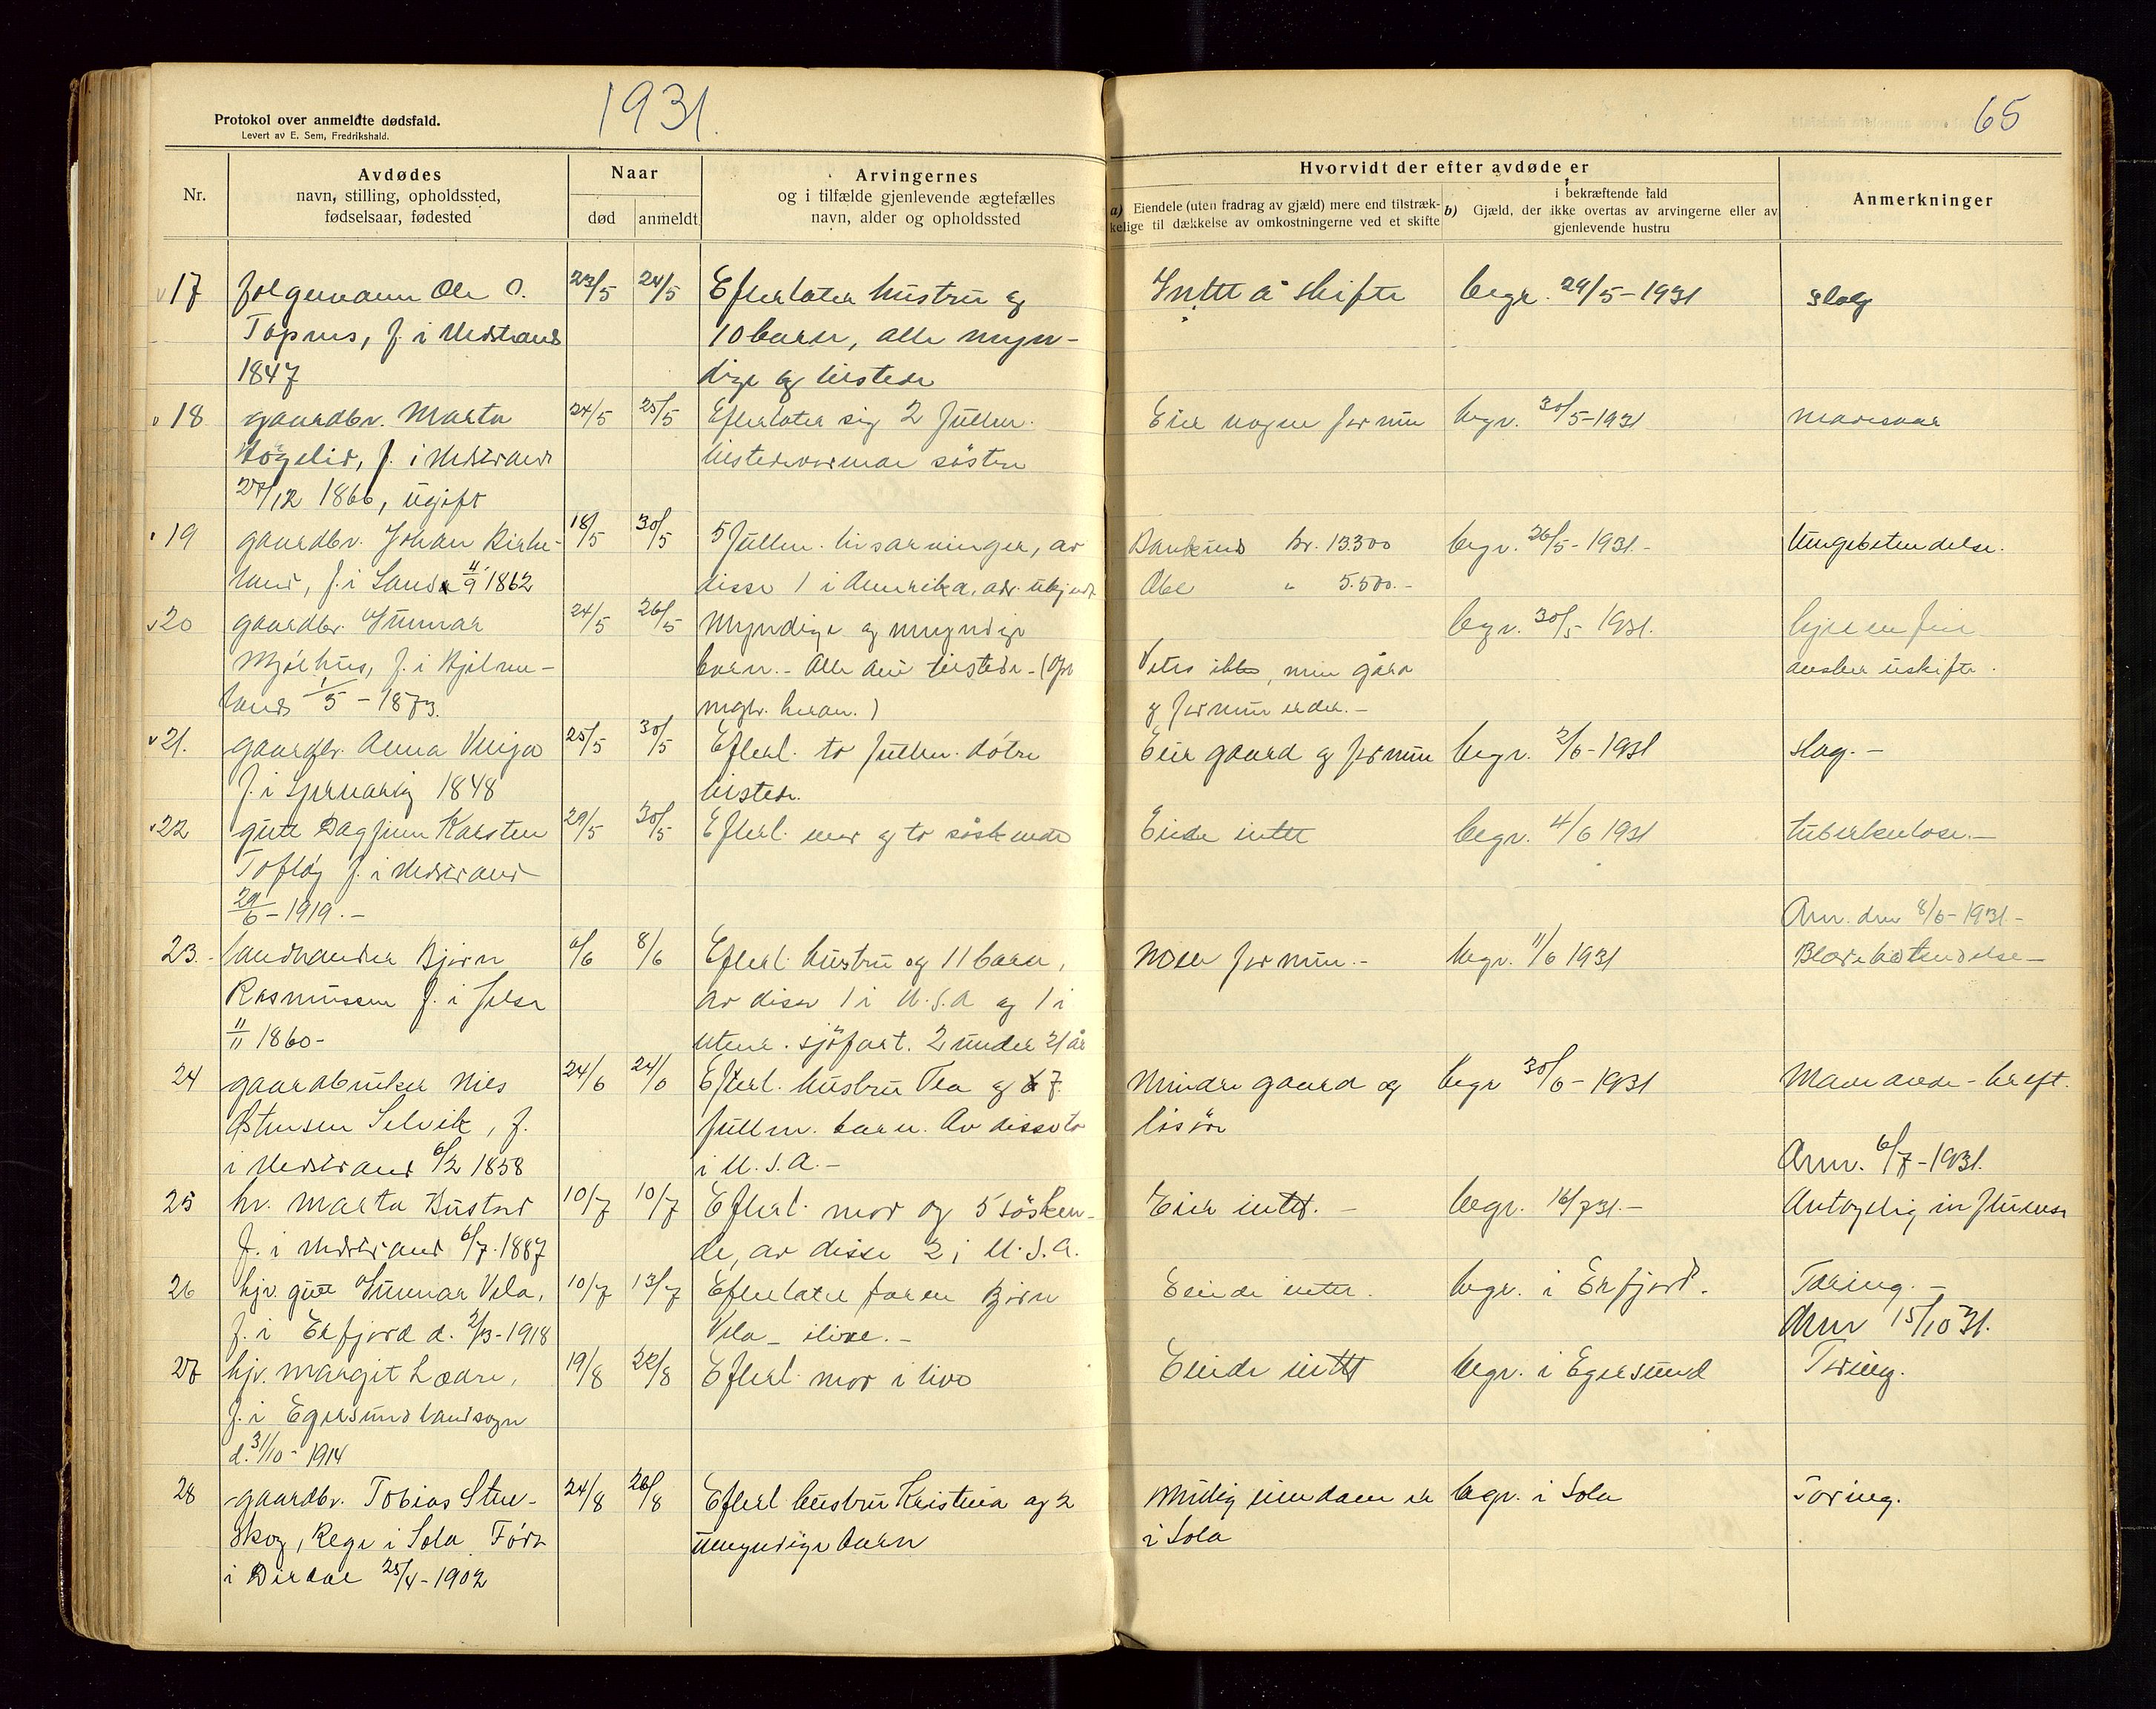 1931.
65
Protokol over anmeldte dødsfald.
Levert av E. Sem, Fredrikshald.
Nr.
Avdødes
navn, stilling, opholdssted,
fødselsaar, fødested
Naar
død
anmeldt
Arvingernes
og i tilfælde gjenlevende ægtefælles
navn, alder og opholdssted
Hvorvidt der efter avdøde er
a) Eiendele (uten fradrag av gjæld) mere end tilstræk-
kelige til dækkelse av omkostningerne ved et skifte
b) i bekræftende fald
Gjæld, der ikke overtas av arvingerne eller av
gjenlevende hustru
Anmerkninger
17 Ole O. 23/5 24/5 Efterlater hustru og Intet å skifte begr. 29/5-1931 slag
f. i Nedstrand 10 barn, alle myn-
1847 dige og tilstede
18 gaardbr. Marta 24/5 25/5 Efterlater sig 2 fullm. Eier nogen formue begr. 30/5-1931
Høgelid, f. i Nedstrand søstre
27/12 1866, ugift
19 gaardbr. Johan Birke- 18/5 30/5 5 fullm. livsarvinger, av Bankinds kr. 13.300 begr. 26/5-1931.- Lungebetendelse.
land, f. i Sand 11/9 1862 disse 1 i Amerika, adr. ukjent " 5.500.-
20 gaardbr. Gunnar 24/5 26/5 Myndige og umyndige begr. 30/5 1931.
Mjølhus, f. i Hjelme- barn.- Alle tilstede - Vites ikke, men gård
land 1/5-1873. og formue er der.-
ønsker uskifte.
21. gaardbr. Anna 25/5 30/5 Efterl. to fullm. døtre Eier gaard og formue begr. 2/6-1931 slag.-
f. i 1848 tilstede.
22 gutt Dagfinn Karsten 29/5 30/5 Efterl. mor og to søskende Eiede intet begr. 4/6 1931 tuberkulose.-
Tofløy f. i Nedstrand
29/6-1919.-
Anm. den 8/6-1931.-
23. landhandler Bjørn 6/6 8/6 Efterl. hustru og 11 barn, Noen formue.- begr. 11/6 1931 Blærebetendelse-
Rasmussen f. i Jelsa av disse 1 i U.S.A og 1 i
11/11 1860- utenr. sjöfart. 2 under 21 år
24 gaardbruker Nils 24/6 24/6 Efterl. hustru Tea og 7 Mindre gaard og begr 30/6-1931
Østensen Selvik, f. fullm. barn. Av disse to løsøre
i Nedstrand 6/2 1858 i U.S.A.-
Anm. 6/7-1931.
25 Marta Bustad 10/7 10/7 Efterl. mor og 5 søsken- Eier intet.- begr. 16/7 31.- Antagelig influensa
f. i Nedstrand 6/7-1887 de, av disse 2 i U.S.A.
26 hjv. gutt Gunnar Vela, 10/7 13/7 Efterlater faren Bjørn Eiede intet. begr. i Erfjord. Tæring.-
f. i Erfjord d. 2/3-1918 Vela - ilive.-
Anm 15/10 31.
27 hjv. Margit Lædre, 19/8 22/8 Efterl. mor i live Eiede intet begr. i Egersund Tæring.
f. i Egersund landsogn
d. 31/10-1914
28 gaardbr. Tobias Sten- 24/8 28/8 Efterl hustru Kristina og 2 Mulig eiendom er begr. i Sola Tæring.
skog, Rege i Sola Født umyndige barn i Sola
i Dirdal 25/4-1902